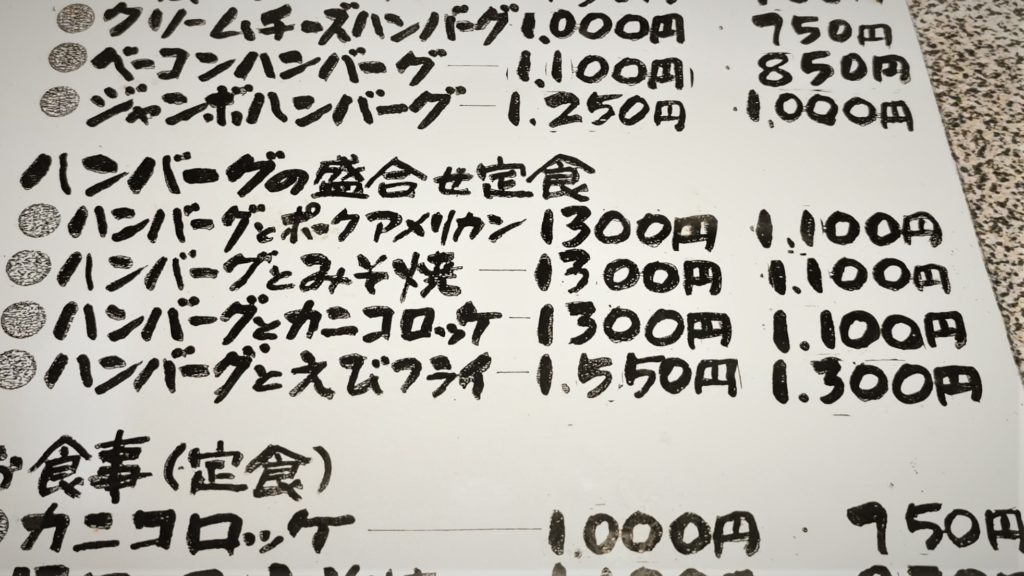 クリームチーズハンバーグ 1.000円 750円
ベーコンハンバーグ 1.100円 850円
ジャンボハンバーグ 1.250円 1.000円
ハンバーグの盛合せ定食
ハンバーグとポークアメリカン 1300円 1.100円
ハンバーグとみそ焼 1300円 1.100円
ハンバーグとカニコロッケ 1300円 1.100円
ハンバーグとえびフライ 1.550円 1.300円
お食事(定食)
カニコロッケ 1.000円 750円